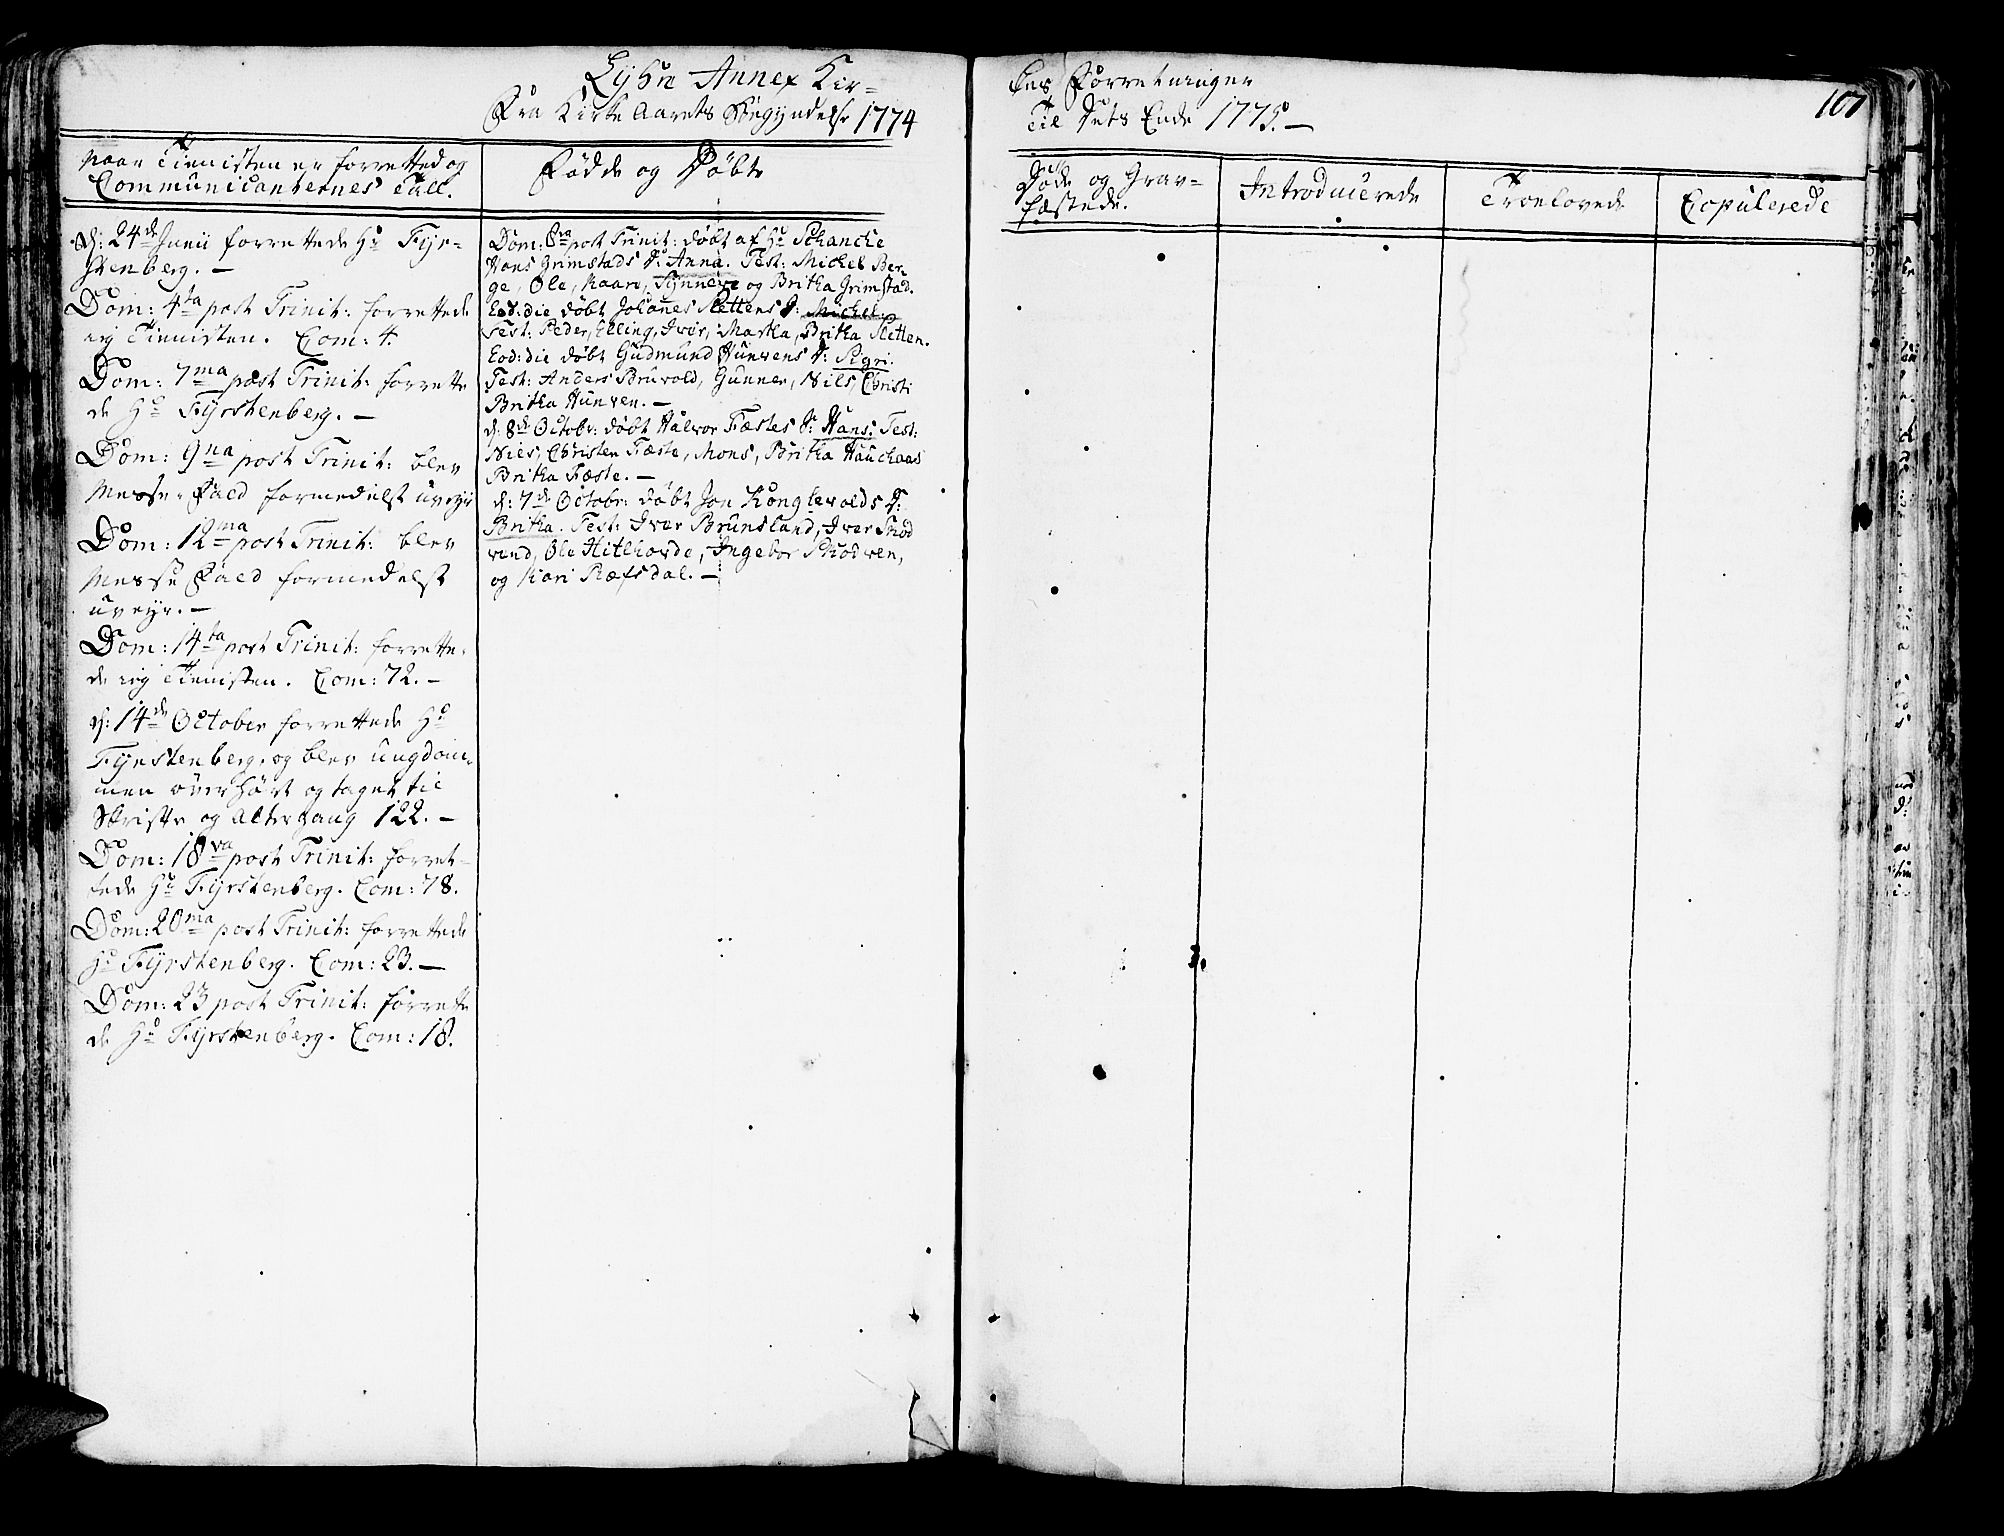 Lyhn Annex Kir=
Fra Kirke Aarets Begyndelse 1774
kes Forretninger
Til dets Ende 1775. —
107
Naar Tienisten er forretted og
Communicanternes Tall.
Fødde og Døbte
Døde og Grav=
fæstede.
Introducerede
Troelovede
Copulerede
d: 24de Junii forrettede Hr Fyr=
stenberg. —
Dom: 4ta post Trinit: forrettede
ieg Tienisten. Com: 4.
Dom: 7ma post Trinit: forrette
de Hr Fyrstenberg. —
Dom: 9na post Trinit: blev
Messe-Fald formedelst uveyr
Dom: 12ma post Trinit: blev
Messe Fald formedelst
uveyr. —
Dom: 14ta post Trinit: forrette-
de ieg Tienisten. Com: 72. —
d: 14de October forrettede Hr
Fyrstenberg, og blev ungdom-
men overhørt og taget til
Skrifte og Altergang 122. —
Dom: 18va post Trinit: forret-
tede Hr Fyrstenberg. Com: 78.
Dom: 20ma post Trinit: forrettede
Hr Fyrstenberg. Com: 23. —
Dom: 23 post Trinit: forrette
de Hr Fyrstenberg. Com: 18.
Dom: 8va post Trinit: døbt af Hr Schancke
Hans Grimstads d: Anna. Test: Michel Ber-
ge, Ole, Kaare, Synneve og Britha Grimstad.
Eod: die døbt Johannes Slettens S: Michel.
Test: Peder, Elling, Iver, Martha, Britha Sletten.
Eod: die døbt Gudmund Hunvens d: Sigri.
Test: Anders Bruvold, Gunner, Nils, Christi
Britha Hunven. —
d: 8de Octobr: døbt Halvor Fæstes S: Hans: Test:
Niels, Christen Fæste, Mons, Britha Hauchaas
Britha Fæste. —
d: 7de Octobr: døbt Jon Konglevolds d:
Britha. Test: Iver Brunsland, Iver Skod
vend, Ole Hitlhovde, Ingebor Skodven,
og Kari Refsdal. —